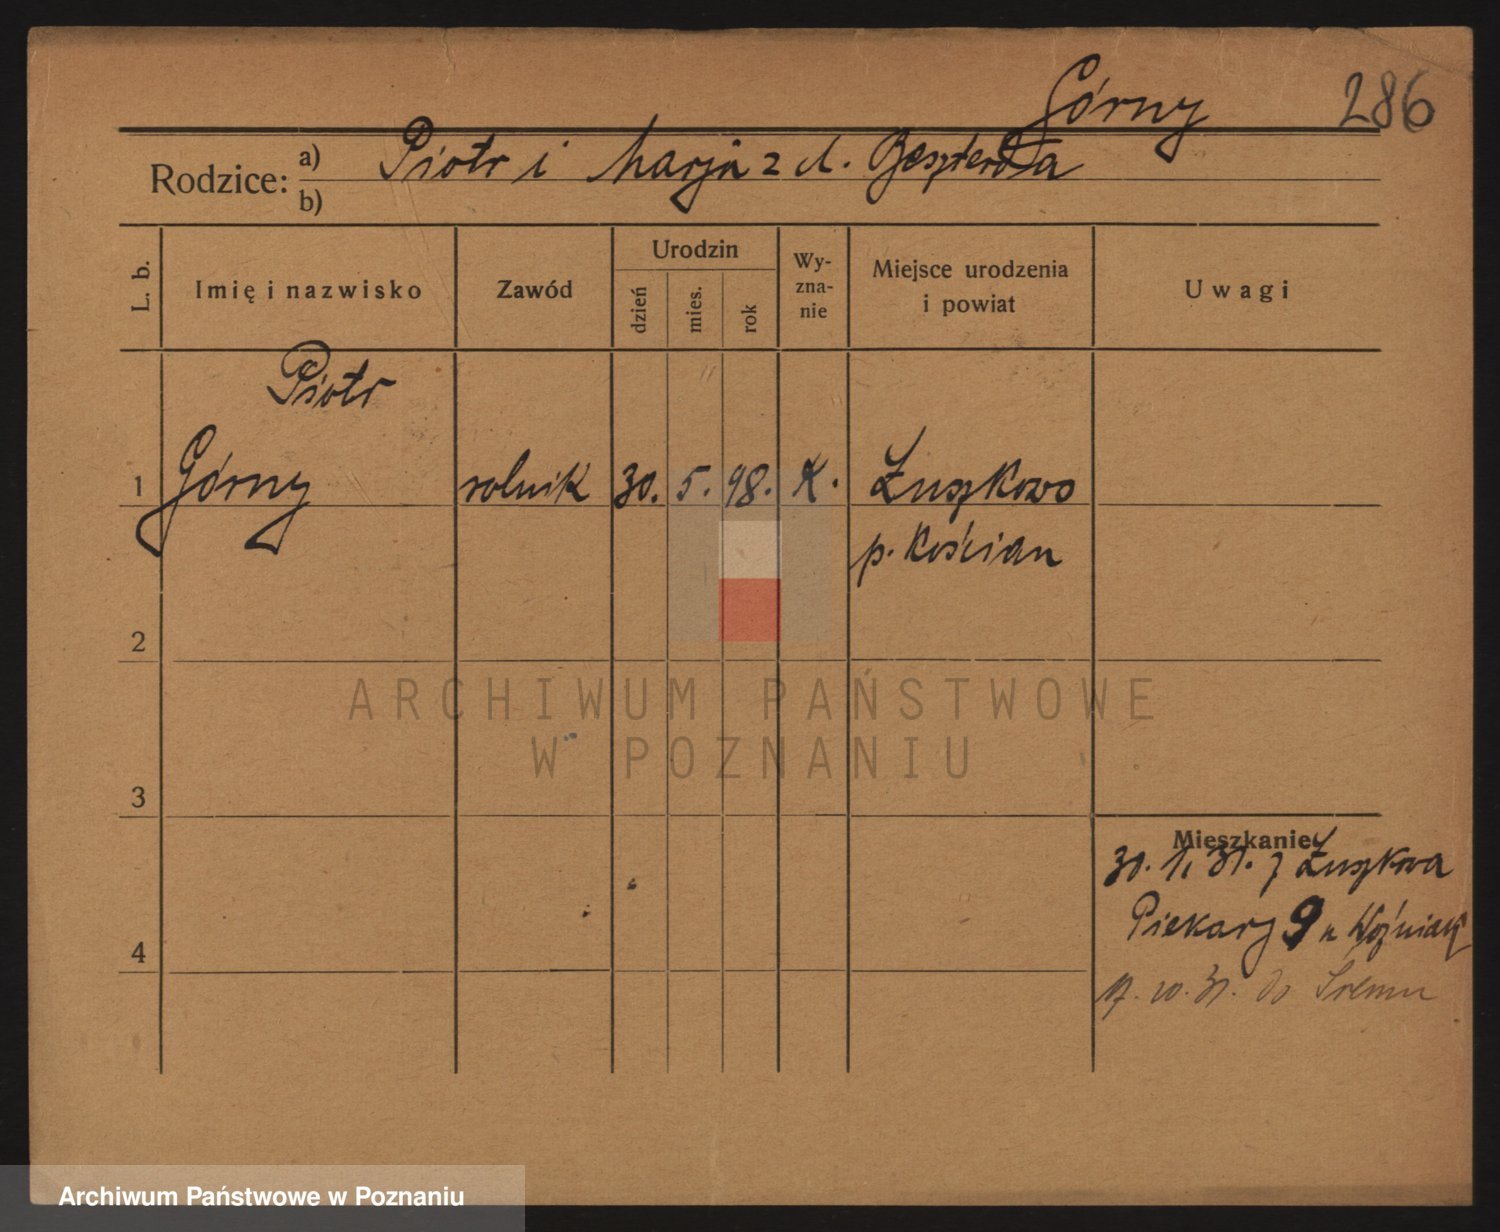 Górny 286
Rodzice: a) Piotr i Marja z d.
b)
L. b. Imię i nazwisko Zawód Urodzin dzień mies. rok Wyznanie Miejsce urodzenia i powiat Uwagi
Piotr
1 Górny rolnik 30. 5. 98. K. Łuszkowo
p. Kościan
2
ARCHIWUM PAŃSTWOWE
W POZNANIU
3
Mieszkanie
30. 1. 31. z Łuszkowa
Piekary 9 u
4
10. 31. do Śremu
Archiwum Państwowe w Poznaniu